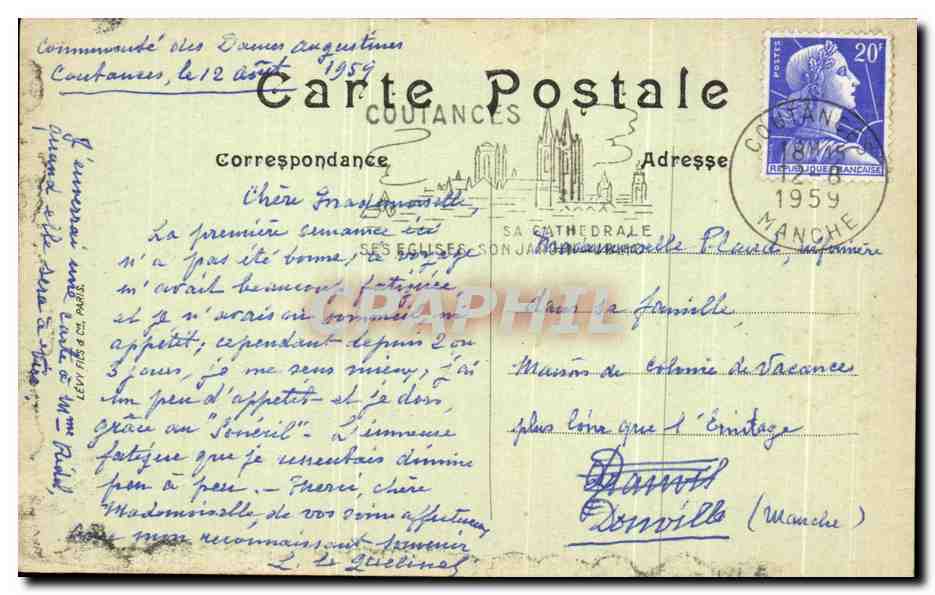 Communauté des Dames Augustines
Coutances, le 12 août 1959
Carte Postale
POSTES
20F
REPUBLIQUE FRANÇAISE
COUTANCES
18H15
12-8
1959
MANCHE
COUTANCES
SA CATHEDRALE
SES EGLISES SON JARDIN PUBLIC
Correspondance
Adresse
Chère Mademoiselle,
La première semaine été
n'a pas été bonne, le voyage
m'avait beaucoup fatiguée
et je n'avais ni sommeil, ni
appétit; cependant depuis 2 ou
3 jours, je me sens mieux, j'ai
un peu d'appétit et je dors,
grâce au "Soneril" - L'immense
fatigue que je ressentais diminue
peu à peu. - Merci, chère
Mademoiselle, de vos soins affectueux
mon reconnaissant souvenir
L. Le
J'enverrai une carte à Mme Ridel,
quand elle sera à Vire.
LÉVY FILS & Cie, PARIS.
Mademoiselle Plaud, infirmière
dans sa famille,
Maison de colonie de Vacances
plus loin que l'Ermitage
Donville (Manche)
CPAPHIL